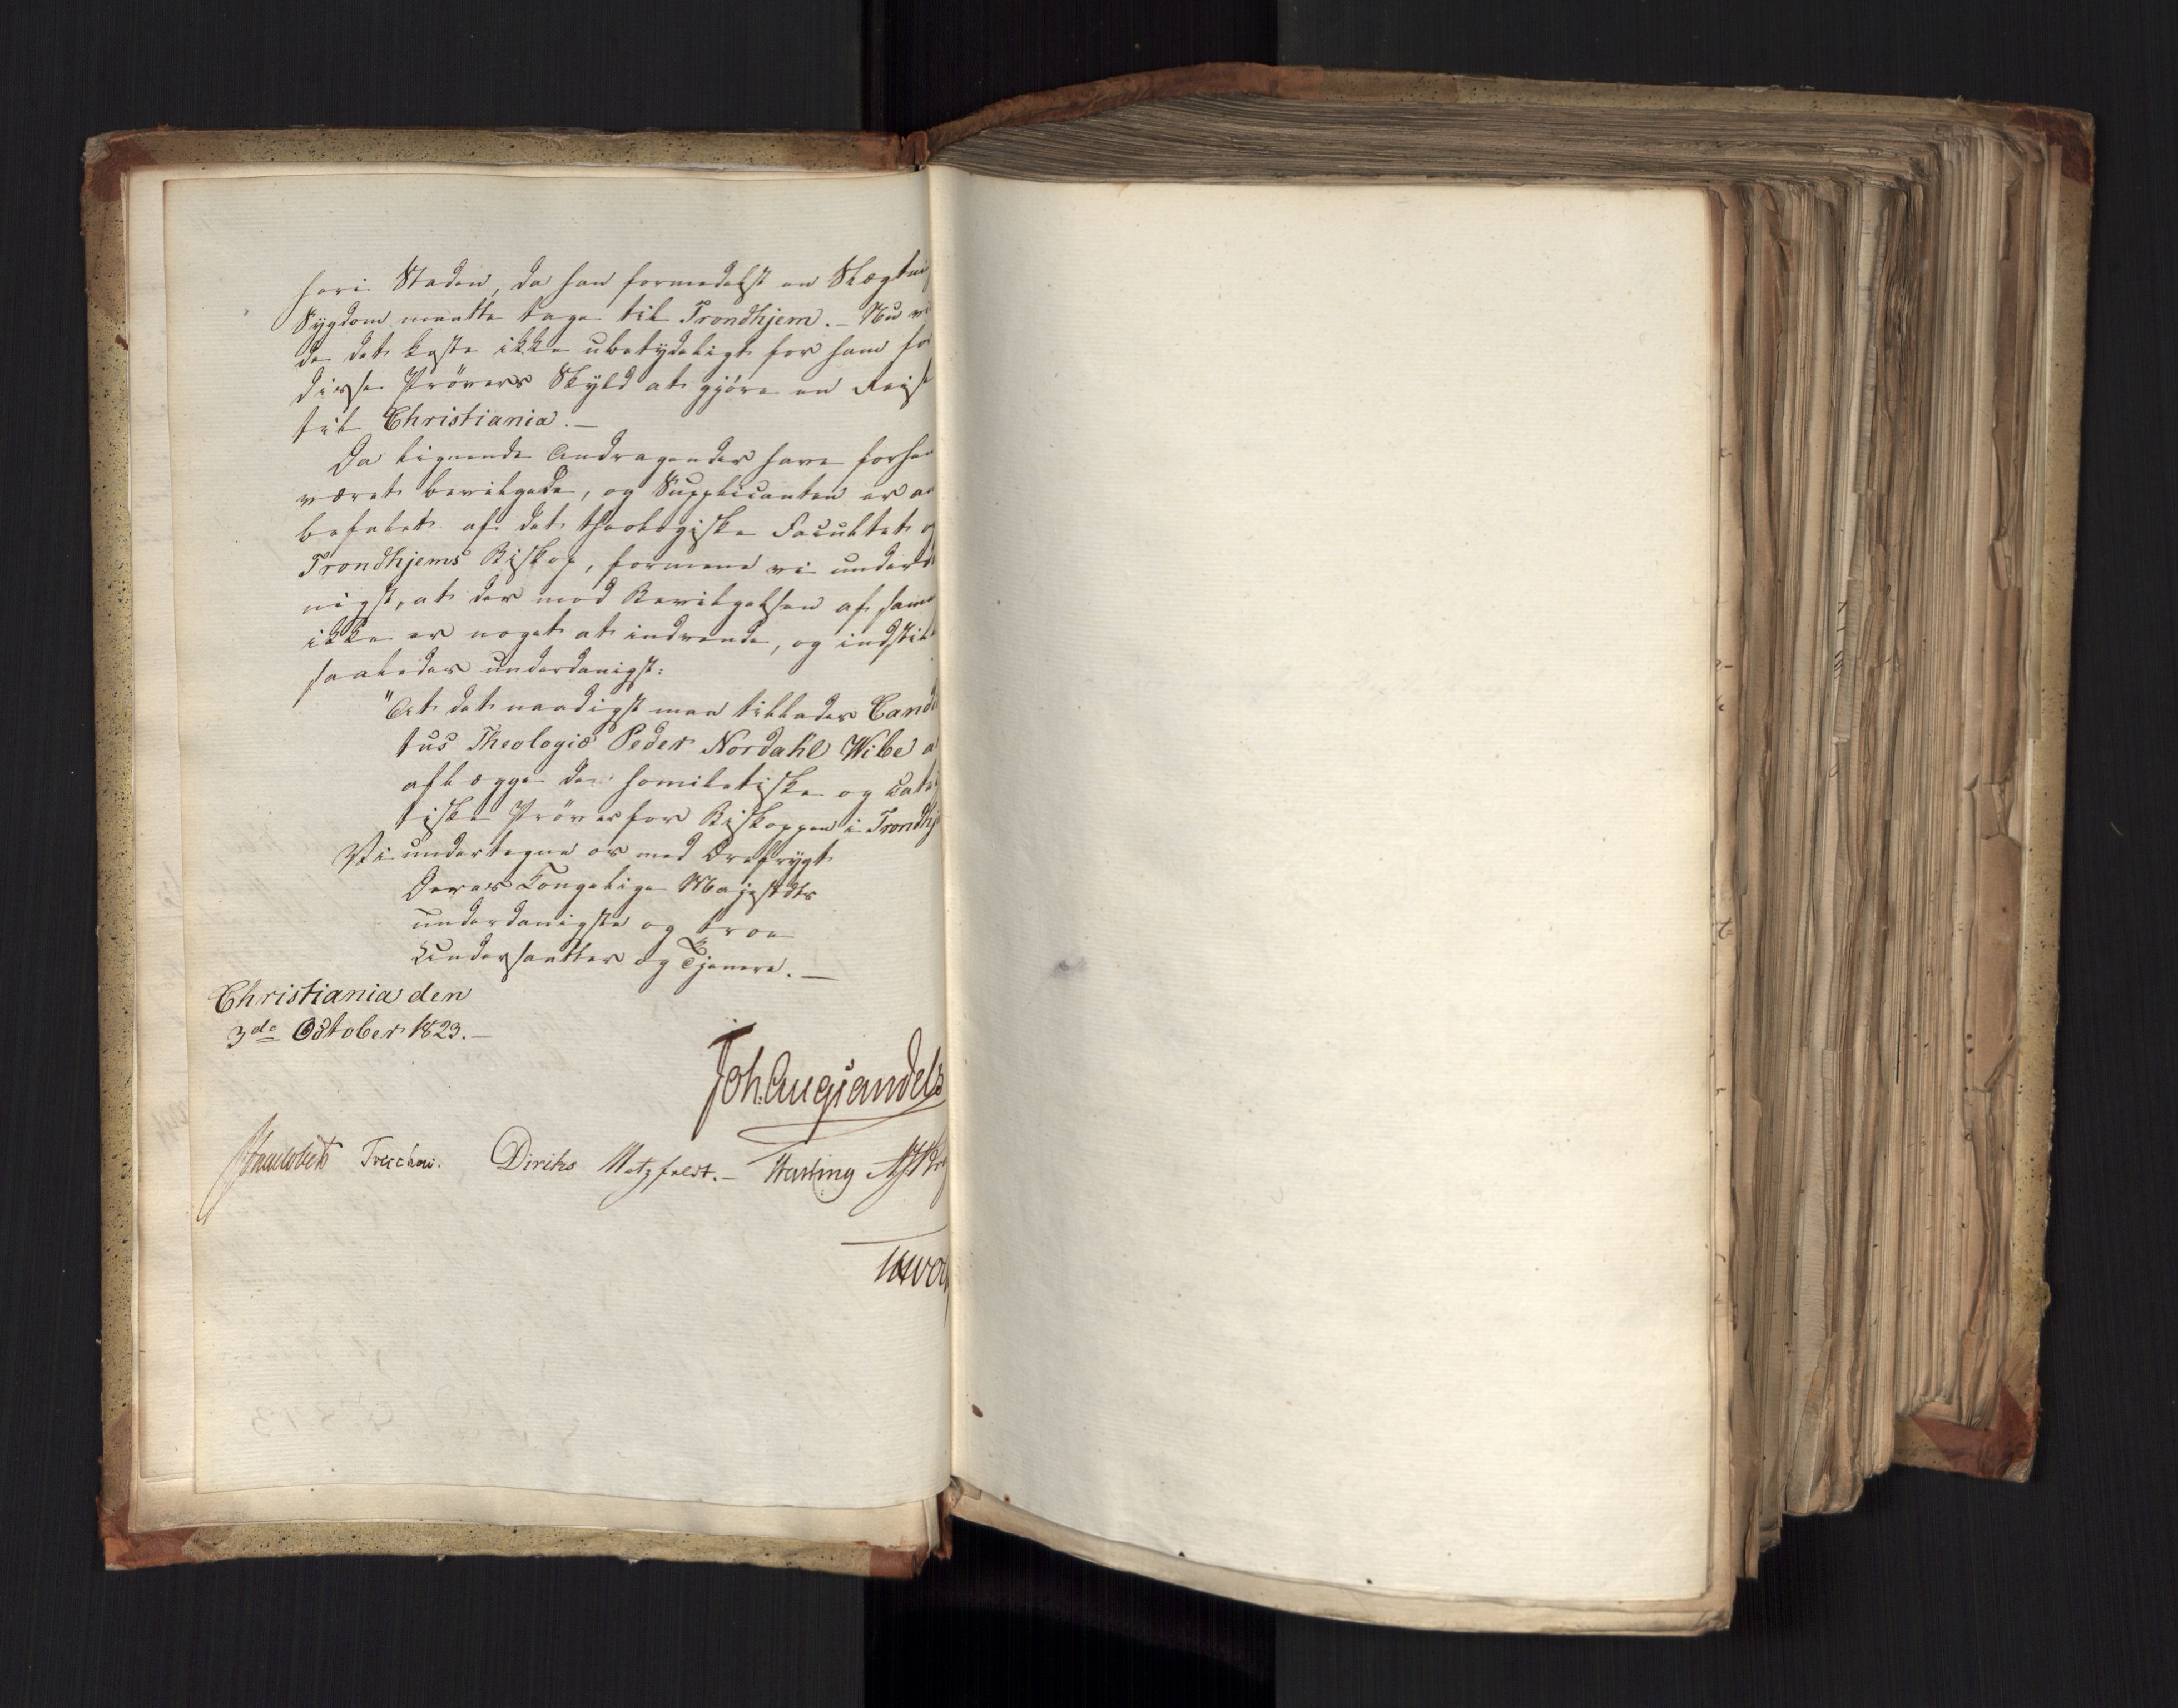 her i Staden, da han formedelst en Slægtni
Sygdom maatte tage til Trondhjem. – Nu vi
de det koste ikke ubetydeligt for ham for
disse Prövers Skyld at gjöre en Reise
til Christiania. –
Da lignende Andragender have forhen
været bevilgede, og Supplicanten er an
befalet af det theologiske Facultet og
Trondhjems Biskop, formene vi underda
nigst, at der mod Bevilgelsen af samme
ikke er noget at indvende, og indstille
saaledes underdanigst:
"At det naadigst maa tillades Candi
tus Theologiæ Peder Nordahl Wibe a
aflægge de homiletiske og cate
tiske Pröver for Biskoppen i Trondhj
Vi undertegne os med Ærefrygt
Deres Kongelige Majestæts
underdanigste og troe
Undersaatter og Tjenere. –
Christiania den
3de October 1823. –
Joh. Aug. Sandels
Treschow. Diriks Motzfeldt. – Fasting